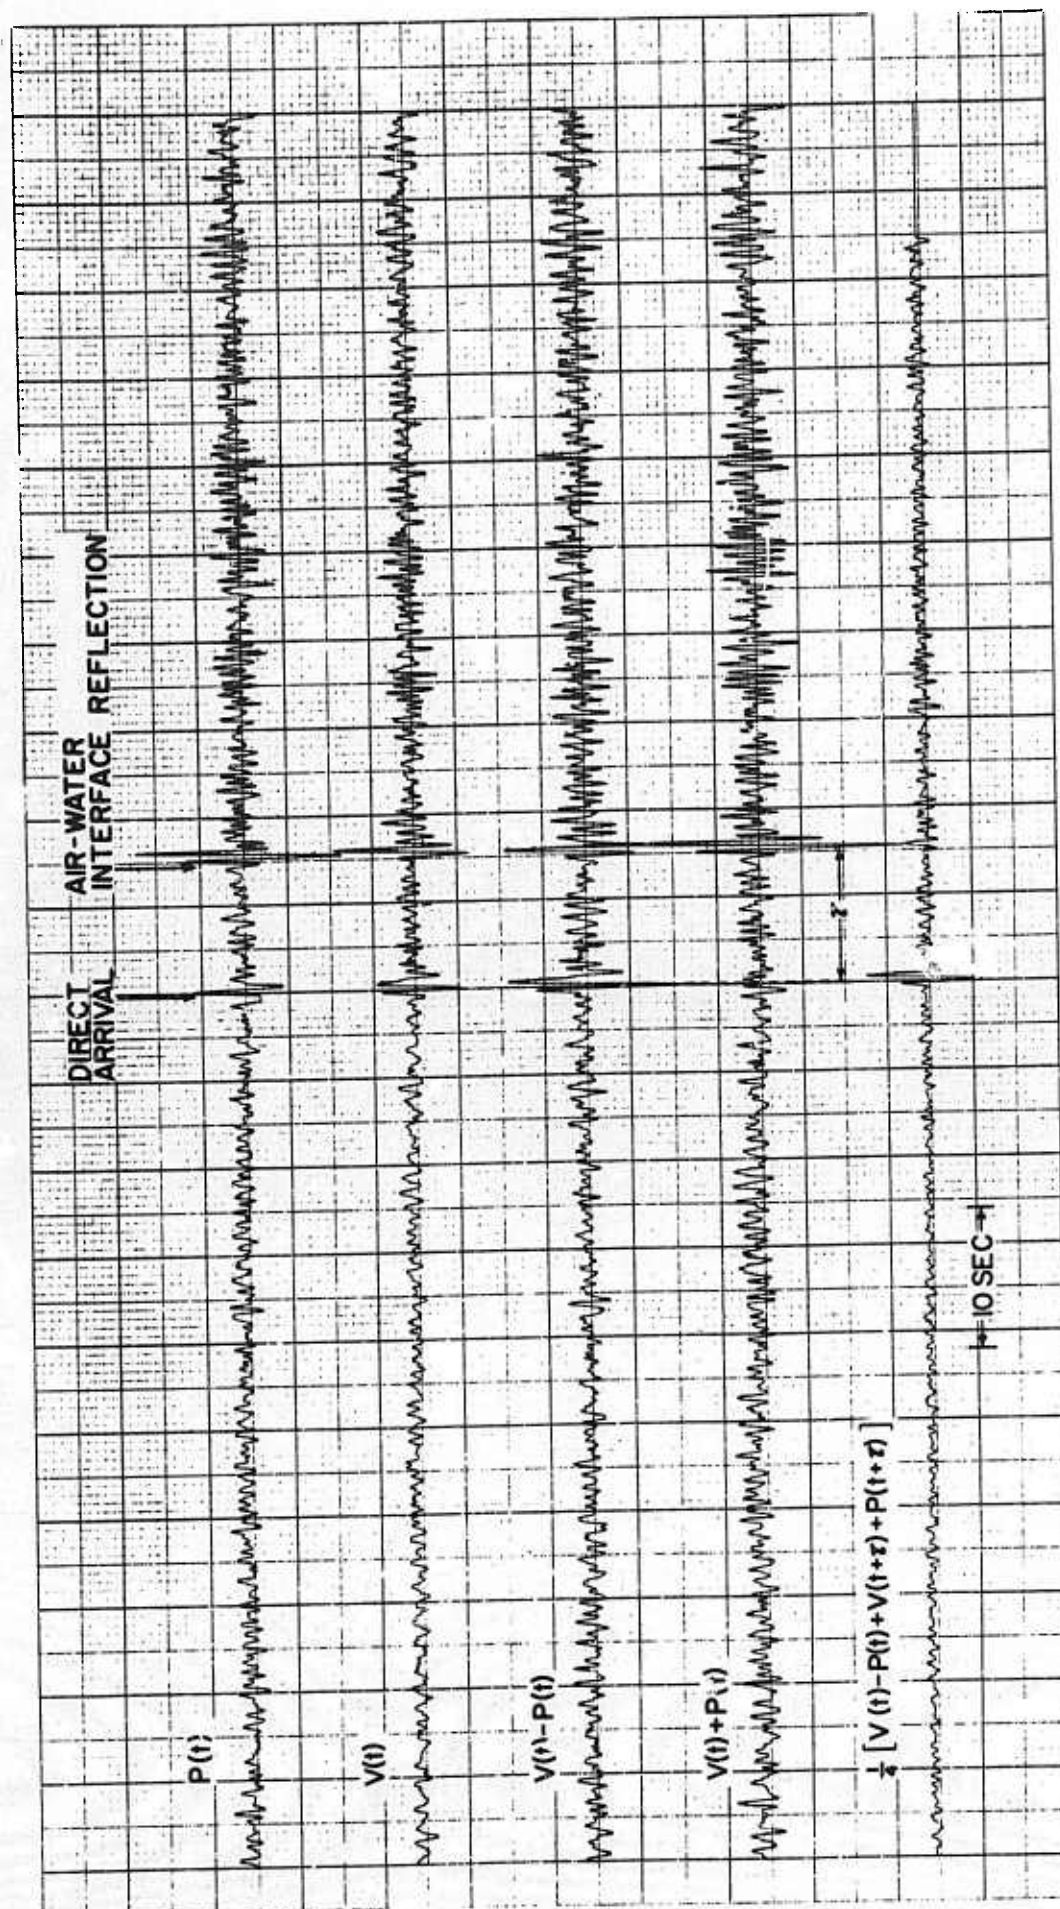 DIRECT
ARRIVAL
AIR-WATER
INTERFACE REFLECTION
P(t)
V(t)
V(t)-P(t)
V(t)+P(t)
τ
1/4 [V(t)-P(t)+V(t+τ)+P(t+τ)]
10 SEC